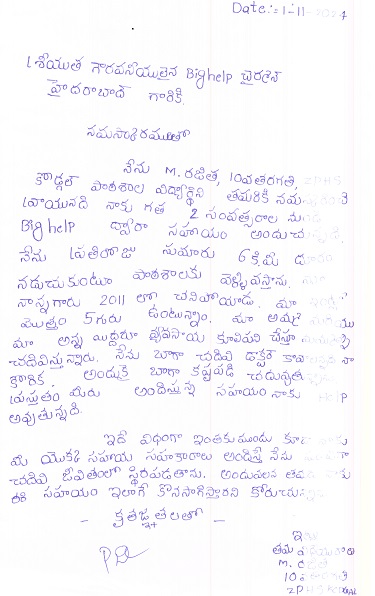 Date: 1-11-2024
శ్రీయుత గౌరవనీయులైన Bighelp చైర్మన్
హైదరాబాద్ గారికి.
నమస్కారములతో
నేను M. రజిత, 10వతరగతి, ZPHS
కొడ్గల్ పాఠశాల విద్యార్థిని తమరికి నమస్కరించి
వ్రాయునది నాకు గత 2 సంవత్సరాల నుండి
Bighelp ద్వారా సహాయం అందుచున్నది.
నేను ప్రతిరోజు సుమారు 6 కి.మీ దూరం
నడుచుకుంటూ పాఠశాలకు వెళ్ళివస్తాను. మా
నాన్నగారు 2011 లో చనిపోయాడు. మా
మొత్తం 5గురు ఉంటున్నాం. మా అమ్మ
మా అన్న ఇద్దరూ వ్యవసాయ కూలిపని చేస్తూ
చదివిస్తున్నారు. నేను బాగా చదివి డాక్టర్ కావాలన్నది నా
కోరిక. అందుకై బాగా కష్టపడి చదువుతా
ప్రస్తుతం మీరు అందిస్తున్న సహాయం నాకు Help
అవుతున్నది.
ఇదే విధంగా ఇంతకుముందు కూడా నాకు
మీ యొక్క సహాయ సహకారాలు అందిస్తే నేను
చదివి జీవితంలో స్థిరపడతాను. అందువలన తమరు నాకు
ఈ సహాయం ఇలాగే కొనసాగిస్తారని కోరుచున్నాను
- కృతజ్ఞతలతో -
ఇట్లు
తమ విధేయురాలు
M. రజిత
10వ తరగతి
ZPHS